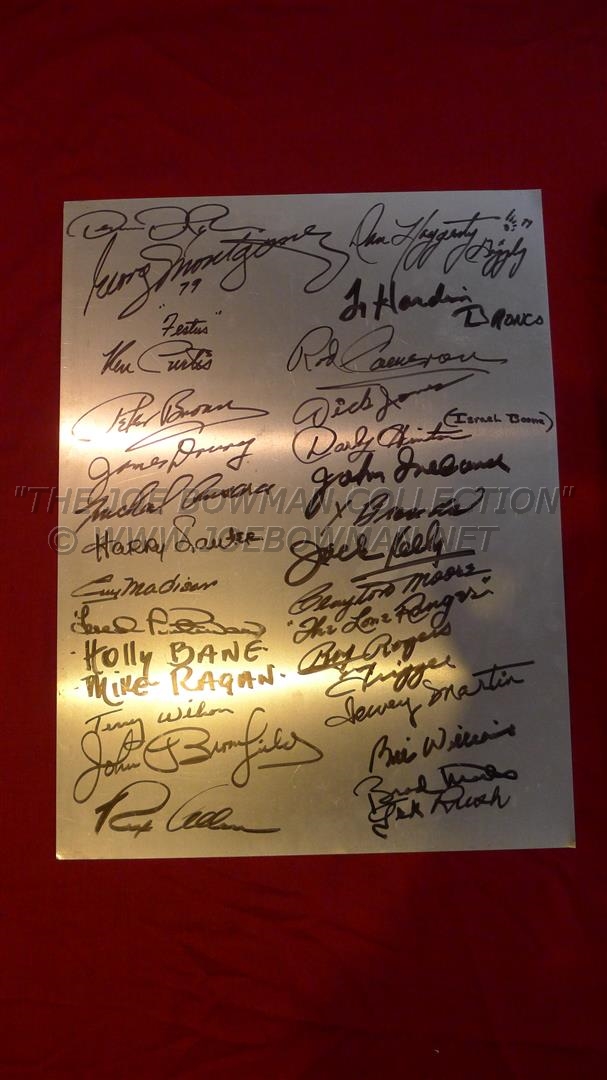 George Montgomery
79
Dan Haggerty
79
"Grizzly"
Ty Hardin
Bronco
"Festus"
Ken Curtis
Rod Cameron
Peter Brown
Dick Jones
James Drury
Darby Hinton
(Israel Boone)
Michael Ansara
John Ireland
"THE JOE BOWMAN COLLECTION"
X Brands
© WWW.JOEBOWMAN.NET
Harry Lauter
Jack Kelly
Guy Madison
Clayton Moore
"The Lone Ranger"
Holly BANE
Roy Rogers
MIKE RAGAN
& Trigger
Terry Wilson
Dewey Martin
John Bromfield
Bill Williams
Rex Allen